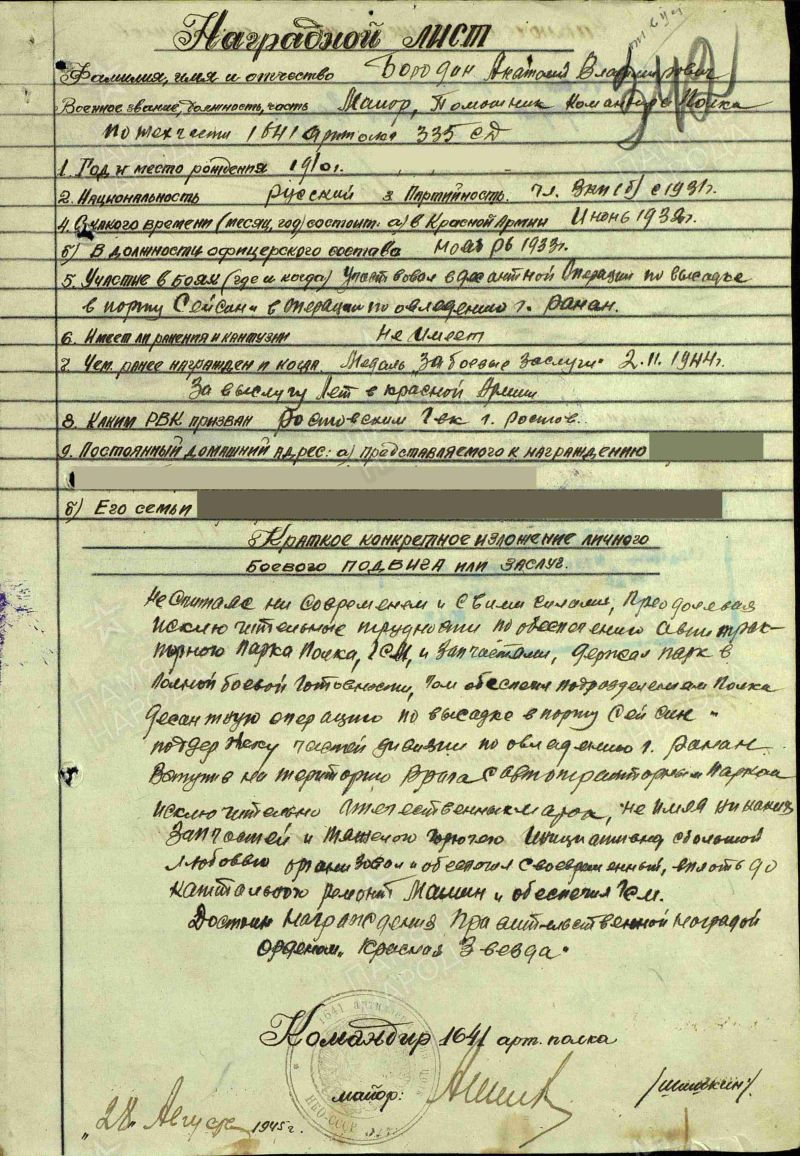 Наградной лист
Фамилия, имя и отчество Бородин Анатолий Владимирович
Военное звание, должность, часть Майор, Помошник Командира Полка
по техчасти 1641 артполка 335 СД
1. Год и место рождения 1910г.
2. Национальность русский 3 Партийность. чл. ВКП(б) с 1931г.
4. С какого времени (месяц, год) состоит: а) в Красной Армии Июнь 1932г.
б) В должности офицерского состава ноябрь 1933г.
5. Участие в боях (где и когда) Участвовал в десантной Операции по высадке
в порту Сейсин и в операции по овладению г. Ранан.
6. Имеет ли ранения и кантузии Не имеет
7. Чем ранее награжден и когда Медаль "За боевые заслуги" 2.11.1944г.
За выслугу Лет в красной Армии
8. Каким РВК призван Ростовским Гвк г. Ростов.
9. Постоянный домашний адрес: а) представляемого к награждению
б) Его семьи
Краткое конкретное изложение личного
боевого подвига или заслуг.
Не считаяс ни современем и своими силами, Преодолевая
исключительные трудности по обеспечению Автотрак-
торного Парка Полка, ГСМ, и Запчастями, держал парк в
Полной боевой готовности, чем обеспечил подразделениям Полка
десантную операцию по высадке в порту Сейсин и
поддержку частей дивизии по овладению г. Ранан.
Вступив на територию врага с автотракторным Парком
исключительно отечественных марок, не имея ни каких
Запчастей и горючего Инициативно с большой
любовью организовал и обеспечил своевременный, вплоть до
капитального ремонт Машин и обеспечил Гсм.
Достоин Награждения Правительственной наградой
орденом "Красная Звезда"
Командир 1641 арт. полка
майор: /Шишкин/
"28" Августа 1945г.